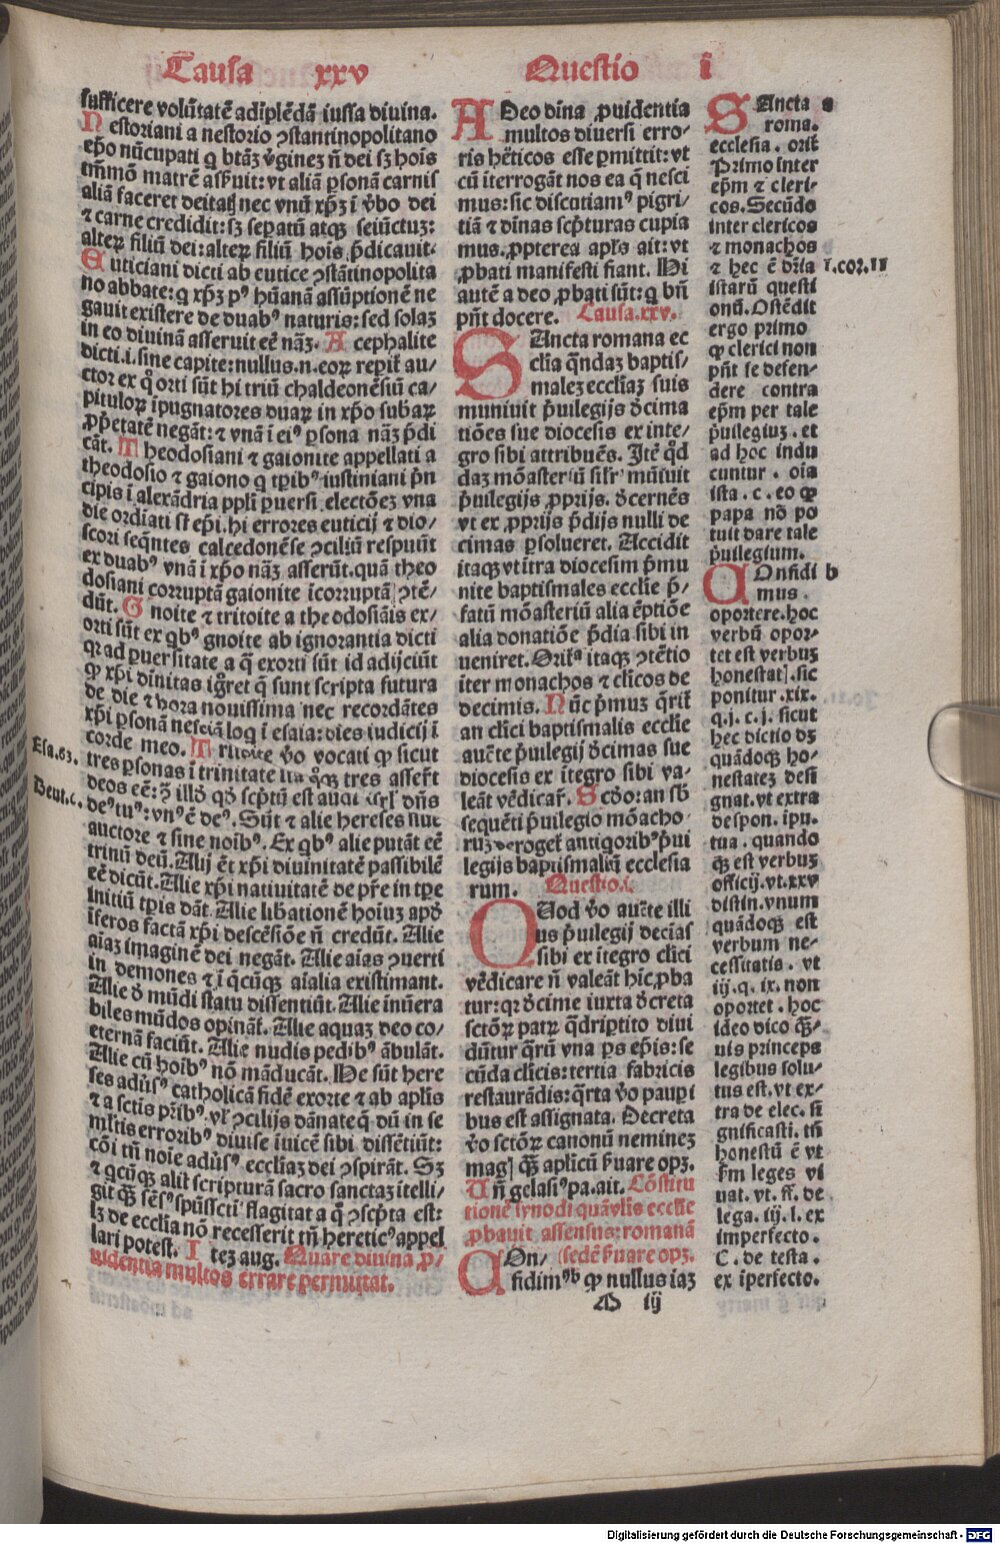 Causa xxv Questio i
sufficere volūtatē adīplēdā iussa diuina.
Nestoriani a nestorio ꝯstantinopolitano
ep̄o nūcupati q btāꝫ v̄gineꝫ n̄ dei sꝫ hoīs
tm̄mō matrē asr̄uit: vt aliā ꝑsonā carnis
aliā faceret deitatꝭ nec vnū xp̄ꝫ ī v̄bo dei
⁊ carne credidit: sꝫ seꝑatū atqꝫ seiūctuꝫ:
alteꝝ filiū dei: alteꝝ filiū hoīs p̄dicauit.
Euticiani dicti ab eutice ꝯstātinopolita
no abbate: q xp̄ꝫ pꝰ hūanā assūptionē ne
gauit existere de duabꝰ naturis: sed solaꝫ
in eo diuinā asseruit eē nāꝫ. Acephalite
dicti .i. sine capite: nullus .n. eoꝝ reꝑit̄ au/
ctor ex qͦ orti sūt hi triū chaldeonēsiū ca/
pituloꝝ īpugnatores duaꝝ in xp̄o subaꝝ
ꝓp̄etatē negāt: ⁊ vnā ī eiꝰ ꝑsona nāꝫ p̄di
cāt. Theodosiani ⁊ gaionite appellati a
theodosio ⁊ gaiono q tꝑibꝰ iustiniani p̄n
cipis ī alexādria ppl̄i ꝑuersi electōeꝫ vna
die ordīati st̄ ep̄i. hi errores euticij ⁊ dio/
scori seq̄ntes calcedonēse ꝯciliū respuūt
ex duabꝰ vnā ī xp̄o nāꝫ asserūt. quā theo
dosiani corruptā gaionite īcorruptā ꝯtē/
dūt. Gnoite ⁊ tritoite a theodosiāis ex/
orti sūt ex qbꝰ gnoite ab ignorantia dicti
qꝛ ad ꝑuersitate a q̄ exorti sūt id adijciūt
ꝙ xp̄i diuīnitas ig̊ret q̄ sunt scripta futura
de die ⁊ hora nouissima nec recordātes
xp̄i ꝑsonā nesciā loq ī esaia: dies iudicij ī
Esa.63. corde meo. Tritoite v̄o vocati ꝙ sicut
tres ꝑsonas ī trinitate ita qͦqꝫ tres asser̄t
Deut.6. deos eē: ꝯ illd̄ qd̄ sc̄ptū est audi isrl̄ dn̄s
deꝰ tuꝰ: vnꝰ ē deꝰ. Sūt ⁊ alie hereses sine
auctore ⁊ sine noībꝰ. Ex qbꝰ alie putāt eē
trinū deū. Alij ēt xp̄i diuinitatē passibilē
eē dicūt. Alie xp̄i natiuitatē de pr̄e in tꝑe
initiū tꝑis dāt. Alie lib̄ationē hoīuꝫ apd̄
īferos factā xp̄i descēsiōe n̄ credūt. Alie
aīaꝫ imaginē dei negāt. Alie aīas ꝯuerti
in demones ⁊ ī qcūqꝫ aīalia existimant.
Alie d̄ mūdi statu dissentiūt. Alie inūera
biles mūdos opināt. Alie aquaꝫ deo co/
eternā faciūt. Alie nudis pedibꝰ ābulāt.
Alie cū hoībꝰ nō māducāt. He sūt here
ses adūsꝰ catholicā fidē exorte ⁊ ab apl̄is
⁊ a sctīs pr̄ibꝰ vl̓ ꝯcilijs dānate q̄ dū in se
ml̓tis erroribꝰ diuise īuicē sibi dissētiūt:
cōi tn̄ noīe adūsꝰ eccl̄iaꝫ dei ꝯspirāt. Sꝫ
⁊ qcūqꝫ alit̓ scripturā sacrо sanctaꝫ ītelli/
git qꝫ sēsꝰ spūsscti flagitat a q̄ ꝯsc̄pta est:
lꝫ de eccl̄ia nō recesserit tn̄ hereticꝰ appel
lari potest. Iteꝫ aug. Quare diuina ꝓ/
uidentia multos errare permittat.
ADeo diīna ꝓuidentia
multos diuersi erro/
ris hēticos esse ꝑmittit: vt
cū īterrogāt nos ea q̄ nesci
mus: sic discutiamꝰ pigri/
tiā ⁊ diīnas sc̄pturas cupia
mus. ꝓpterea apl̓s ait: vt
ꝓbati manifesti fiant. Hi 1.cor.11
autē a deo ꝓbati sūt: q bn̄
pn̄t docere. Causa.xxv.
SAncta romana ec
cl̄ia q̄ndaꝫ baptis/
maleꝫ eccl̄iaꝫ suis
muniuit p̄uilegijs d̄cima
tiōes sue diocesis ex īnte/
gro sibi attribuēs. Itē q̊d
daꝫ mōasteriū sil̓r mūiuit
p̄uilegijs ꝓprijs. d̄cernēs
vt ex ꝓprijs p̄dijs nulli de
cimas ꝑsolueret. Accidit
itaqꝫ vt ītra diocesim p̄mu
nite baptismales eccl̄ie p̄/
fatū mōasteriū alia ēptiōe
alia donatiōe p̄dia sibi in
ueniret. Orit̓ᵃ itaqꝫ ꝯtētio
iter monachos ⁊ cl̓icos de
decimis. Nūc p̄muꝫ q̄rit̓
an cl̓ici baptismalis eccl̄ie
auc̄te p̄uilegij d̄cimas sue
diocesis ex ītegro sibi va/
leāt vēdicar̄. Scd̄o: an sb̄
sequēti p̄uilegio mōacho
ruꝫ deroget̓ antiqoribꝰ p̄ui
legijs baptismaliū ecclesia
rum. Questio.i.
QUod v̄o auc̄te illi
us p̄uilegij decias
sibi ex ītegro cl̓ici
vēdicare n̄ valeāt hīc ꝓba
tur: qꝛ d̄cime iuxta d̄creta
sctōꝝ patꝝ q̄driꝑtito diui
dūtur q̄rū vna ꝑs ep̄is: se
cūda cl̓icis: tertia fabricis
restaurādis: q̄rta v̄o pauꝑi
bus est assignata. Decreta
v̄o sctōꝝ canonū nemineꝫ
magꝭ qꝫ apl̓icū s̓uare opꝫ.
Un̄ gelasiꝰ pa. ait. Cōstitu
tionē synodi quāvl̓is eccl̄ie
ꝓbauit assensus: romanā
COn/ (sedē s̓uare opꝫ.
fidimꝰb ꝙ nullus iaꝫ
D iij
SAncta a
roma.
ecclesia. orit̓
Primo inter
ep̄m ⁊ cleri/
cos. Secūdo
inter clericos
⁊ monachos
⁊ hec ē dr̄ia
istarū questi
onū. Ostēdit
ergo primo
ꝙ clerici non
pn̄t se defen/
dere contra
ep̄m per tale
p̄uilegiuꝫ. et
ad hoc indu
cuntur. oīa
ista. c. eo ꝙ
papa nō po
tuit dare tale
p̄uilegium.
COnfidi b
mus.
oportere. hoc
verbū opor/
tet est verbuꝫ
honestatꝭ. sic
ponitur .xix.
q.j. c.j. sicut
hec dictio dꝫ
quādoqꝫ ho/
nestateꝫ desi
gnat. vt extra
despon. ipu.
tua. quando
qꝫ est verbuꝫ
officij. vt. xxv
distin. vnum
quādoqꝫ est
verbum ne/
cessitatis. vt
iij. q. ix. non
oportet. hoc
ideo dico qꝫ/
uis princeps
legibus solu/
tus est. vt ex/
tra de elec. si
gnificasti. tn̄
honestū ē vt
s̓m leges vi
uat. vt. ff. de
lega. iij. l. ex
imperfecto.
C. de testa.
ex iperfecto.
Digitalisierung gefördert durch die Deutsche Forschungsgemeinschaft - DFG